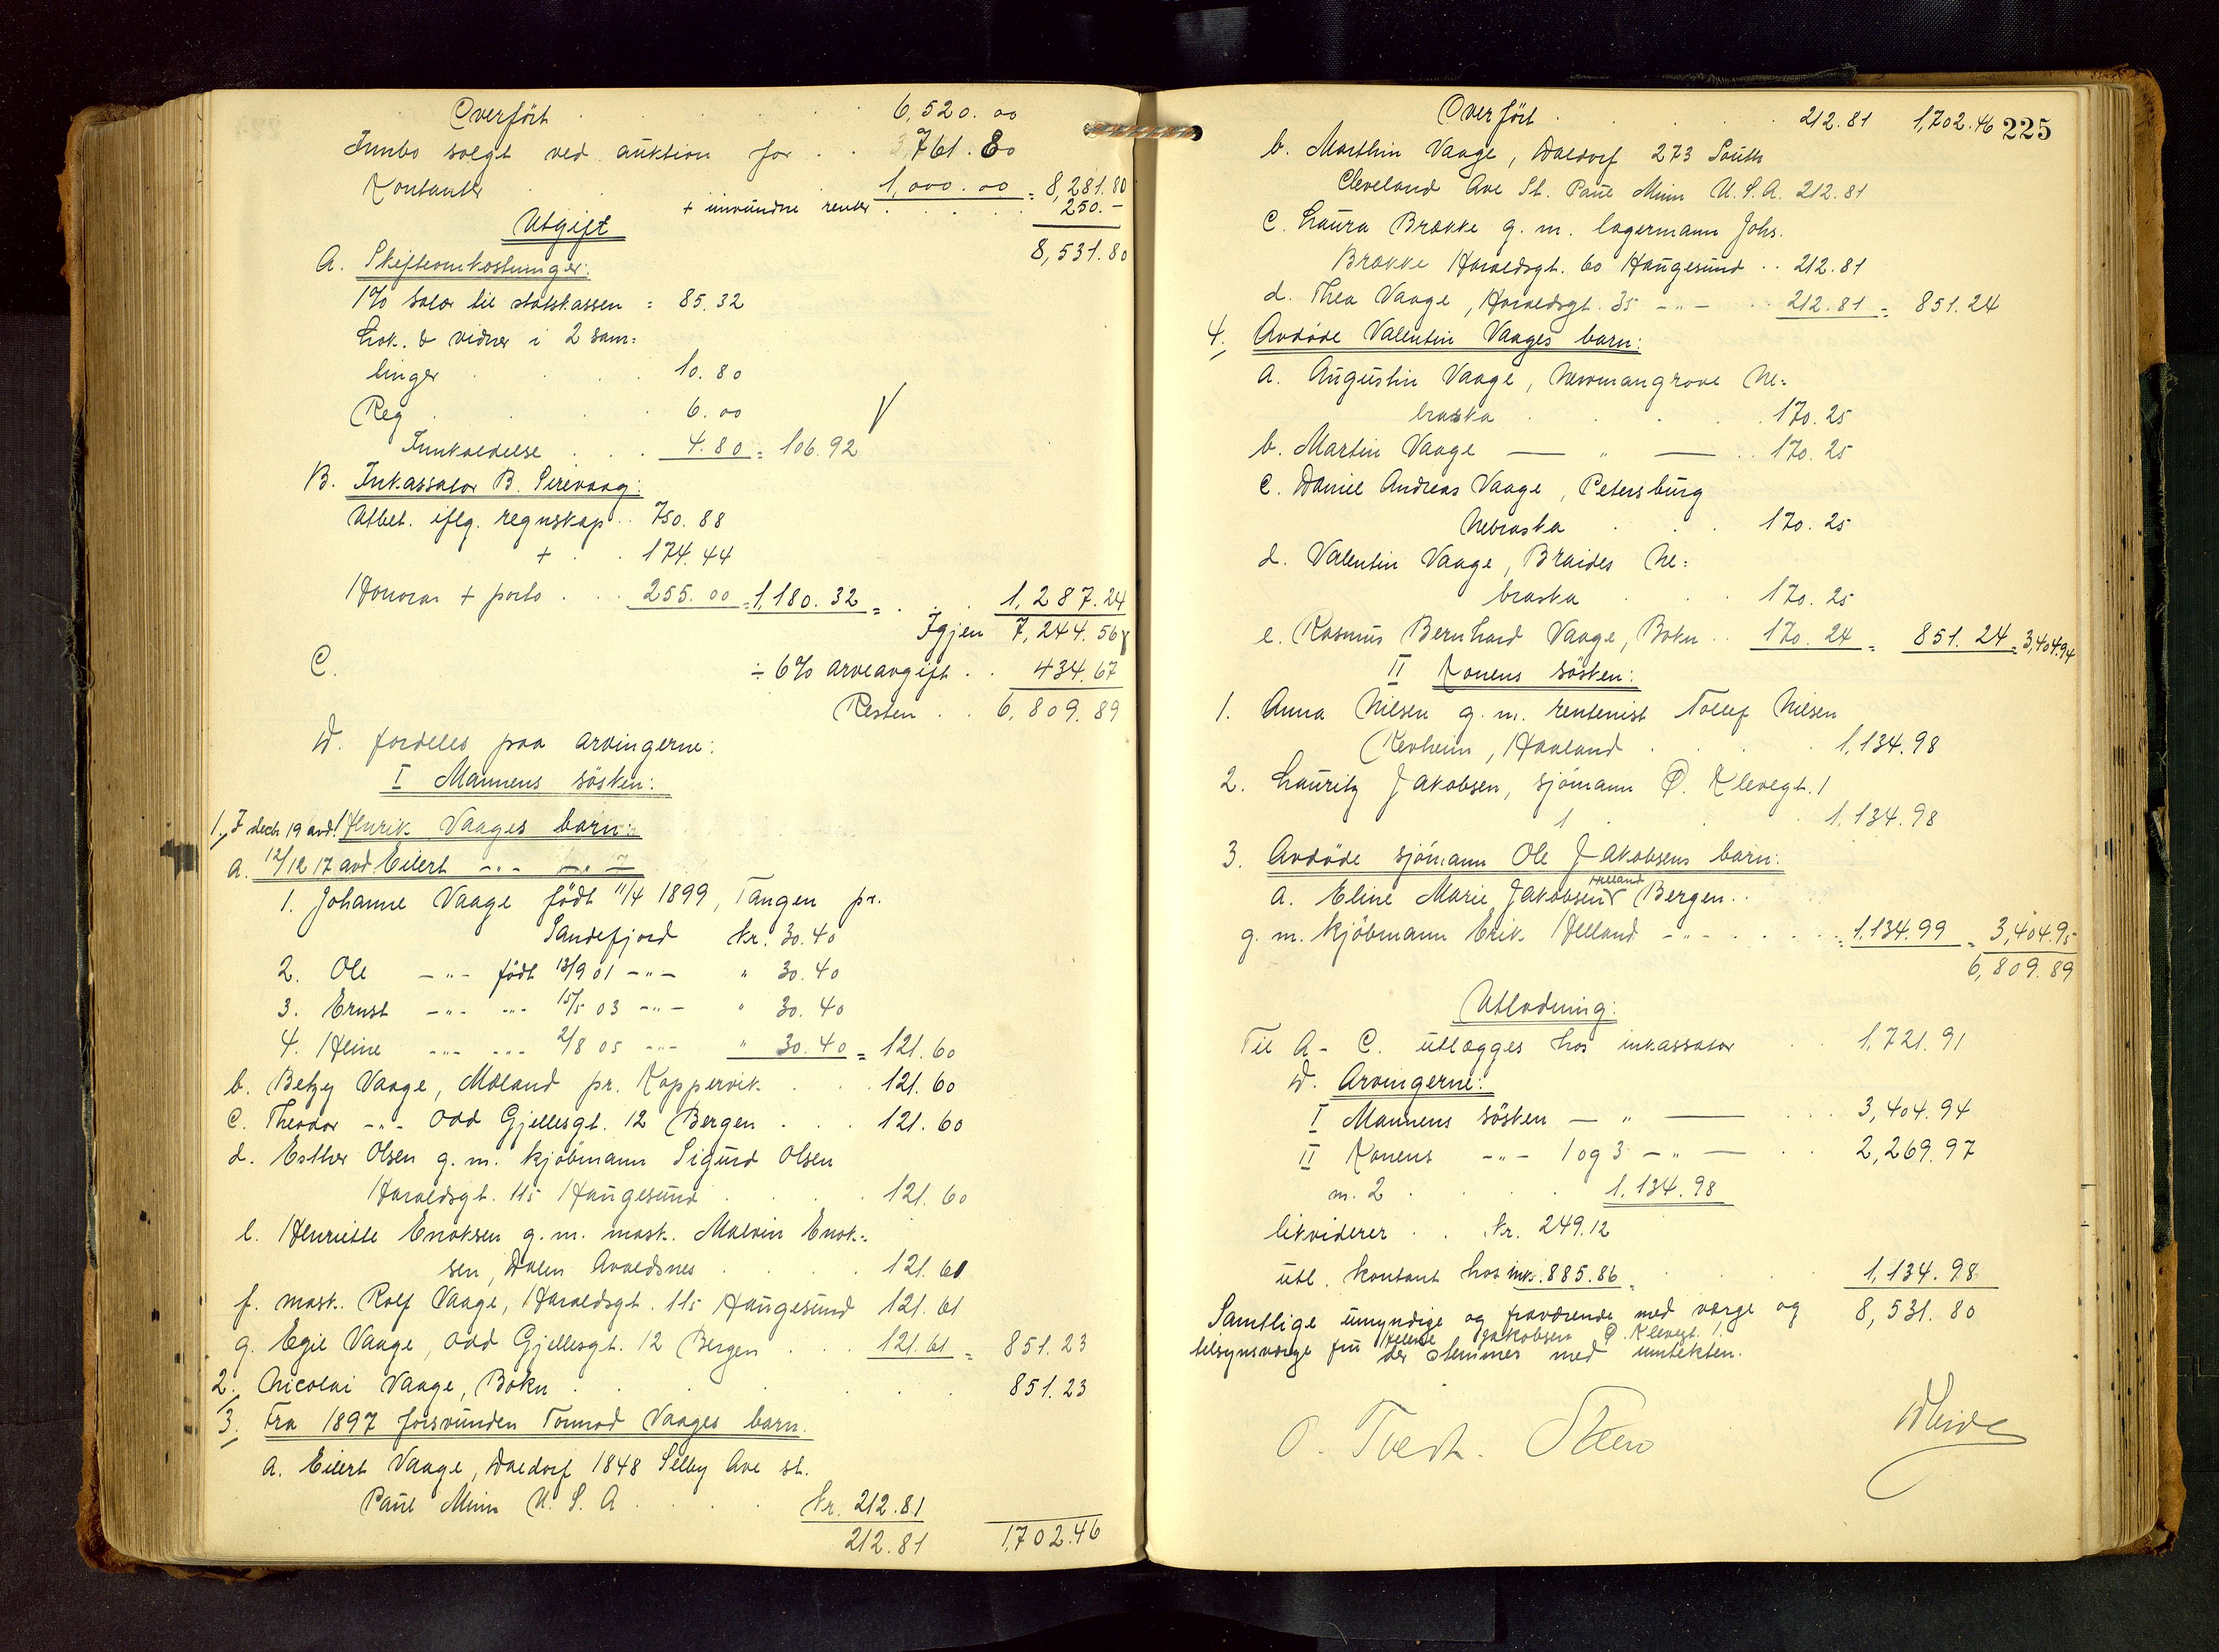 Overført . . . . 6,520.00
Innbo solgt ved auktion for . . 761.80
Kontanter . . . 1,000.00 = 8,281.80
+ innvundne renter . . . . 250.-
Utgift 8,531.80
A. Skifteomkostninger:
1% salær til statskassen = 85.32
Lok. & vidner i 2 sam=
linger . . . . 10.80
Reg . . . . 6.00
Innkaldelse . . . 4.80 = 106.92
B. Inkassator B. Sirevaag:
Utbet. iflg. regnskap . . 750.88
+ . . 174.44
Honorar + porto . . . 255.00 = 1,180.32 = . . . 1,287.24
Igjen 7,244.56
C. ÷ 6% arveavgift . . 434.67
Resten . . 6,809.89
D. fordeles paa arvingerne:
I Mannens søsken:
1. 7 dech 19 avd. Henrik Vaages barn:
a. 12/12 17 avd Eilert -"- -"-
1. Johanne Vaage født 11/4 1899, Tangen pr.
Sandefjord kr. 30.40
2. Ole -"- født 13/9 01 -"- " 30.40
3. Ernst -"- -"- 15/5 03 -"- " 30.40
4. Heine -"- -"- 2/8 05 -"- " 30.40 = 121.60
b. Betzy Vaage, Mæland pr. Koppervik . . 121.60
c. Theodor -"- Odd Gjellesgt. 12 Bergen . . . 121.60
d. Esther Olsen g. m. kjøbmann Sigurd Olsen
Haraldsgt. 115 Haugesund . . . . 121.60
e. Henriette Enoksen g. m. mask. Malvin Enok=
sen, Dalen Avaldsnes . . . . 121.61
f. mask. Rolf Vaage, Haraldsgt. 115 Haugesund 121.61
g. Egil Vaage, Odd Gjellesgt. 12 Bergen . . . 121.61 = 851.23
2. Nicolai Vaage, Bokn . . . . . . 851.23
3. Fra 1897 forsvunden Tormod Vaages barn.
a. Eilert Vaage, Waldorf 1848 Selby Ave st.
Paul Minn U. S. A . . . . kr. 212.81
212.81 1,702.46
Overført . . . . 212.81 1,702.46 225
b. Marthin Vaage, Waldorf 273 South
Cleveland Ave St. Paul Minn U. S. A. 212.81
c. Laura Brække g. m. lagermann Johs.
Brække Haraldsgt. 60 Haugesund . . 212.81
d. Thea Vaage, Haraldsgt. 35 -"- . . 212.81 = 851.24
4. Avdøde Valentin Vaages barn:
a. Augustin Vaage, Newmangrove Ne=
braska . . . . 170.25
b. Martin Vaage — " — . . 170.25
c. Daniel Andreas Vaage, Petersburg
Nebraska . . . 170.25
d. Valentin Vaage, Braides Ne=
braska . . . 170.25
e. Rasmus Bernhard Vaage, Bokn . . 170.24 = 851.24 = 3,404.94
II Konens søsken:
1. Anna Nilsen g. m. rentenist Tollef Nilsen
Revheim, Haaland . . . . 1,134.98
2. Lauritz Jakobsen, sjømann Ø. Klevegt. 1
1,134.98
3. Avdøde sjømann Ole Jakobsens barn:
a. Eline Marie Jakobsen Helland Bergen . .
g. m. kjøbmann Erik Helland -"- . . . . 1,134.99 = 3,404.95
6,809.89
Utlodning:
Til A - C. utlægges hos inkassator . . 1,721.91
D. Arvingerne:
I Mannens søsken — " — . . . 3,404.94
II Konens -"- 1 og 3 — " — . . 2,269.97
m. 2 . . . . 1,134.98
likviderer . . kr. 249.12
utl. kontant hos ink. 885.86 = . . . 1,134.98
Samtlige umyndige og fraværende med værge og 8,531.80
tilsynsværge fru Helene Jakobsen Ø. Klevegt. 1.
der stemmer med inntekten.
O. Tvedt. Steen